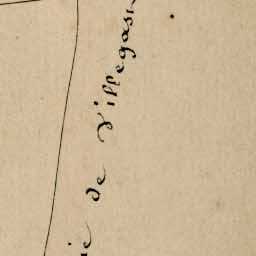 ie de Villegasi